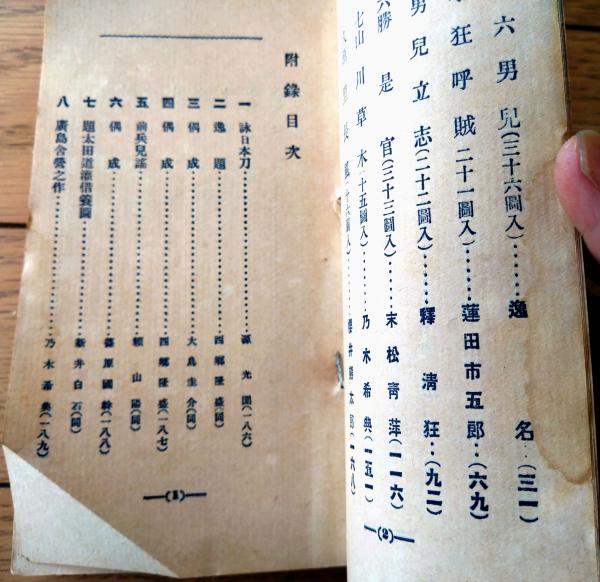 六男兒(三十六圖入)……逸名…(三一)
狂呼賊二十一圖入)……蓮田市五郎…(六九)
男兒立志(二十二圖入)……釋清狂…(九二)
勝是官(三十三圖入)……末松青萍(一一六)
山川草木二十五圖入)……乃木希典(一五一)
長
圖入)……櫻井
太郎(一六八)
―(2)―
附錄目次
一 詠日本刀……源光圀(一八六)
二 逸題……西鄉隆盛(同)
三 偶成……大鳥圭介(同)
四 偶成……西鄉隆盛(一八七)
五 前兵兒謠……賴山陽(同)
六 偶成……篠原國幹(一八八)
七 題太田道灌借蓑圖……新井白石(同)
八 廣島舍營之作……乃木希典(一八九)
―(1)―